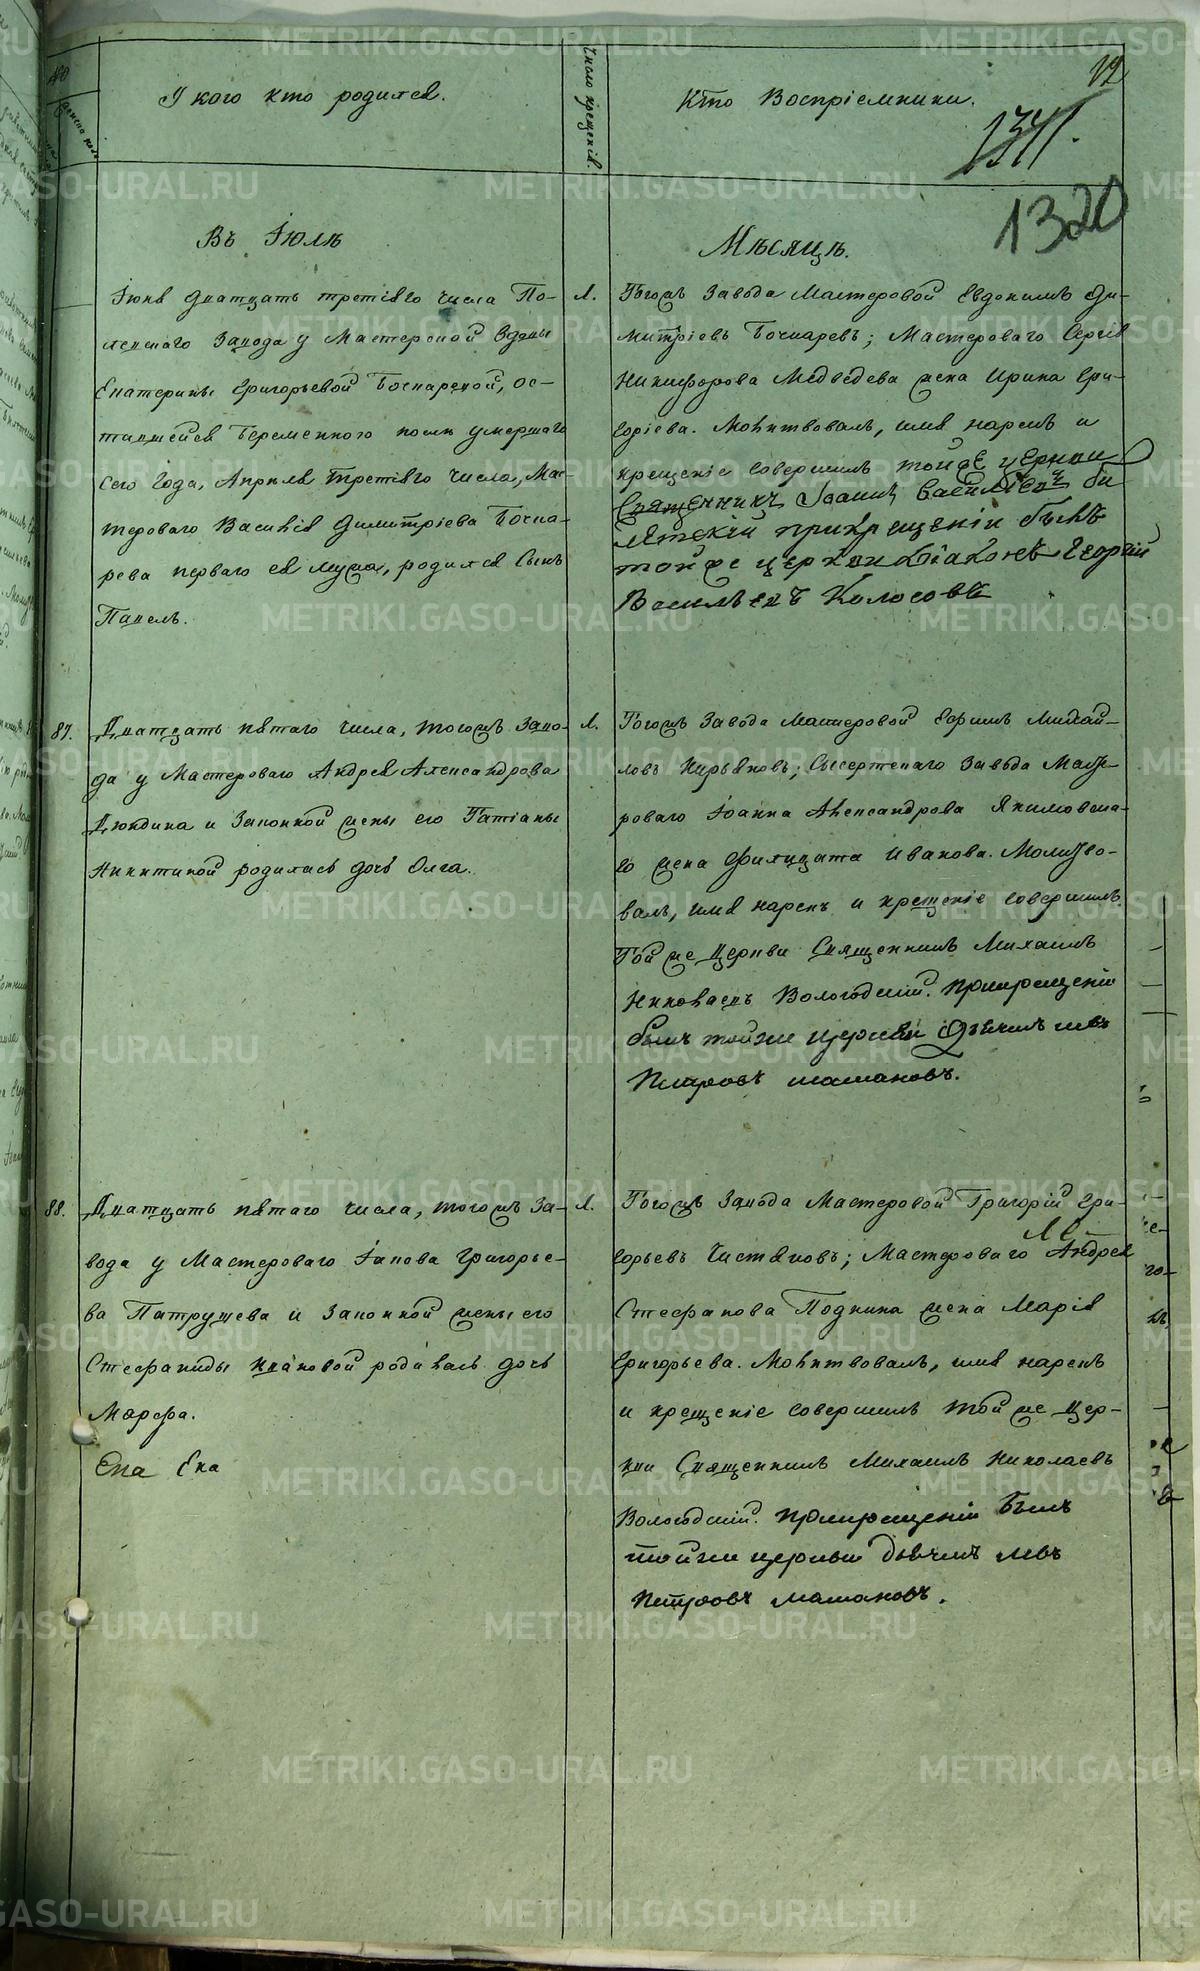 У кого кто родился.
Число крещенія.
Кто Воспріемники.
12
1341.
1320
Въ Іюлѣ
Мѣсяцѣ.
Іюня дватцать третіяго числа По-
левскаго Завода у Мастерской вдовы
Екатерины Григорьевой Бочкаревой, ос-
тавшейся беременною после умершаго
сего года, Апреля третіяго числа, Мас-
тероваго Василія Димитріева Бочка-
рева перваго ея мужа, родился сынъ
Павелъ.
Л.
Тогожъ Завода Мастеровой Евдокимъ Ди-
митріевъ Бочкаревъ; Мастероваго Сергѣя
Никифорова Медведева жена Ирина Гри-
горіева. Молитвовалъ, имя нарекъ и
крещеніе совершилъ тойже церкви
Священникъ Іоаннъ Васильевъ Би
лятскій прикрещеніи былъ
тойже церкви діаконъ Георгій
Васильевъ Колосовъ
87.
Дватцать пятаго числа, тогожъ Заво-
да у Мастероваго Андрея Александрова
Дюкдина и Законной жены его Татіаны
Никитиной родилась дочь Олга.
Л.
Тогожъ Завода Мастеровой Ефимъ Михай-
ловъ Кирьяковъ; Сысертскаго Завода Масте-
роваго Іоанна Александрова Якимовска-
го жена Филицата Иванова. Молитво-
валъ, имя нарекъ и крещеніе совершилъ
Той же Церкви Священникъ Михаилъ
Николаевъ Вологодскій. прикрещеніи
былъ тойже церкви дьячикъ левъ
Петровъ мамановъ.
88.
Дватцать пятаго числа, тогожъ За-
вода у Мастероваго Іакова Григорье-
ва Патрушева и Законной жены его
Стефаниды Ивановой родилась дочь
Марфа.
Ека Ека
Л.
Тогожъ Завода Мастеровой Григорій Гри-
горьевъ Чистяковъ; Мастероваго Андрея
Стефанова Подкина жена Марія
Григорьева. Молитвовалъ, имя нарекъ
и крещеніе совершилъ той же Цер-
кви Священникъ Михаилъ Николаевъ
Вологодскій. прикрещеніи былъ
тойже церкви дьячикъ левъ
Петровъ мамановъ.
METRIKI.GASO-URAL.RU